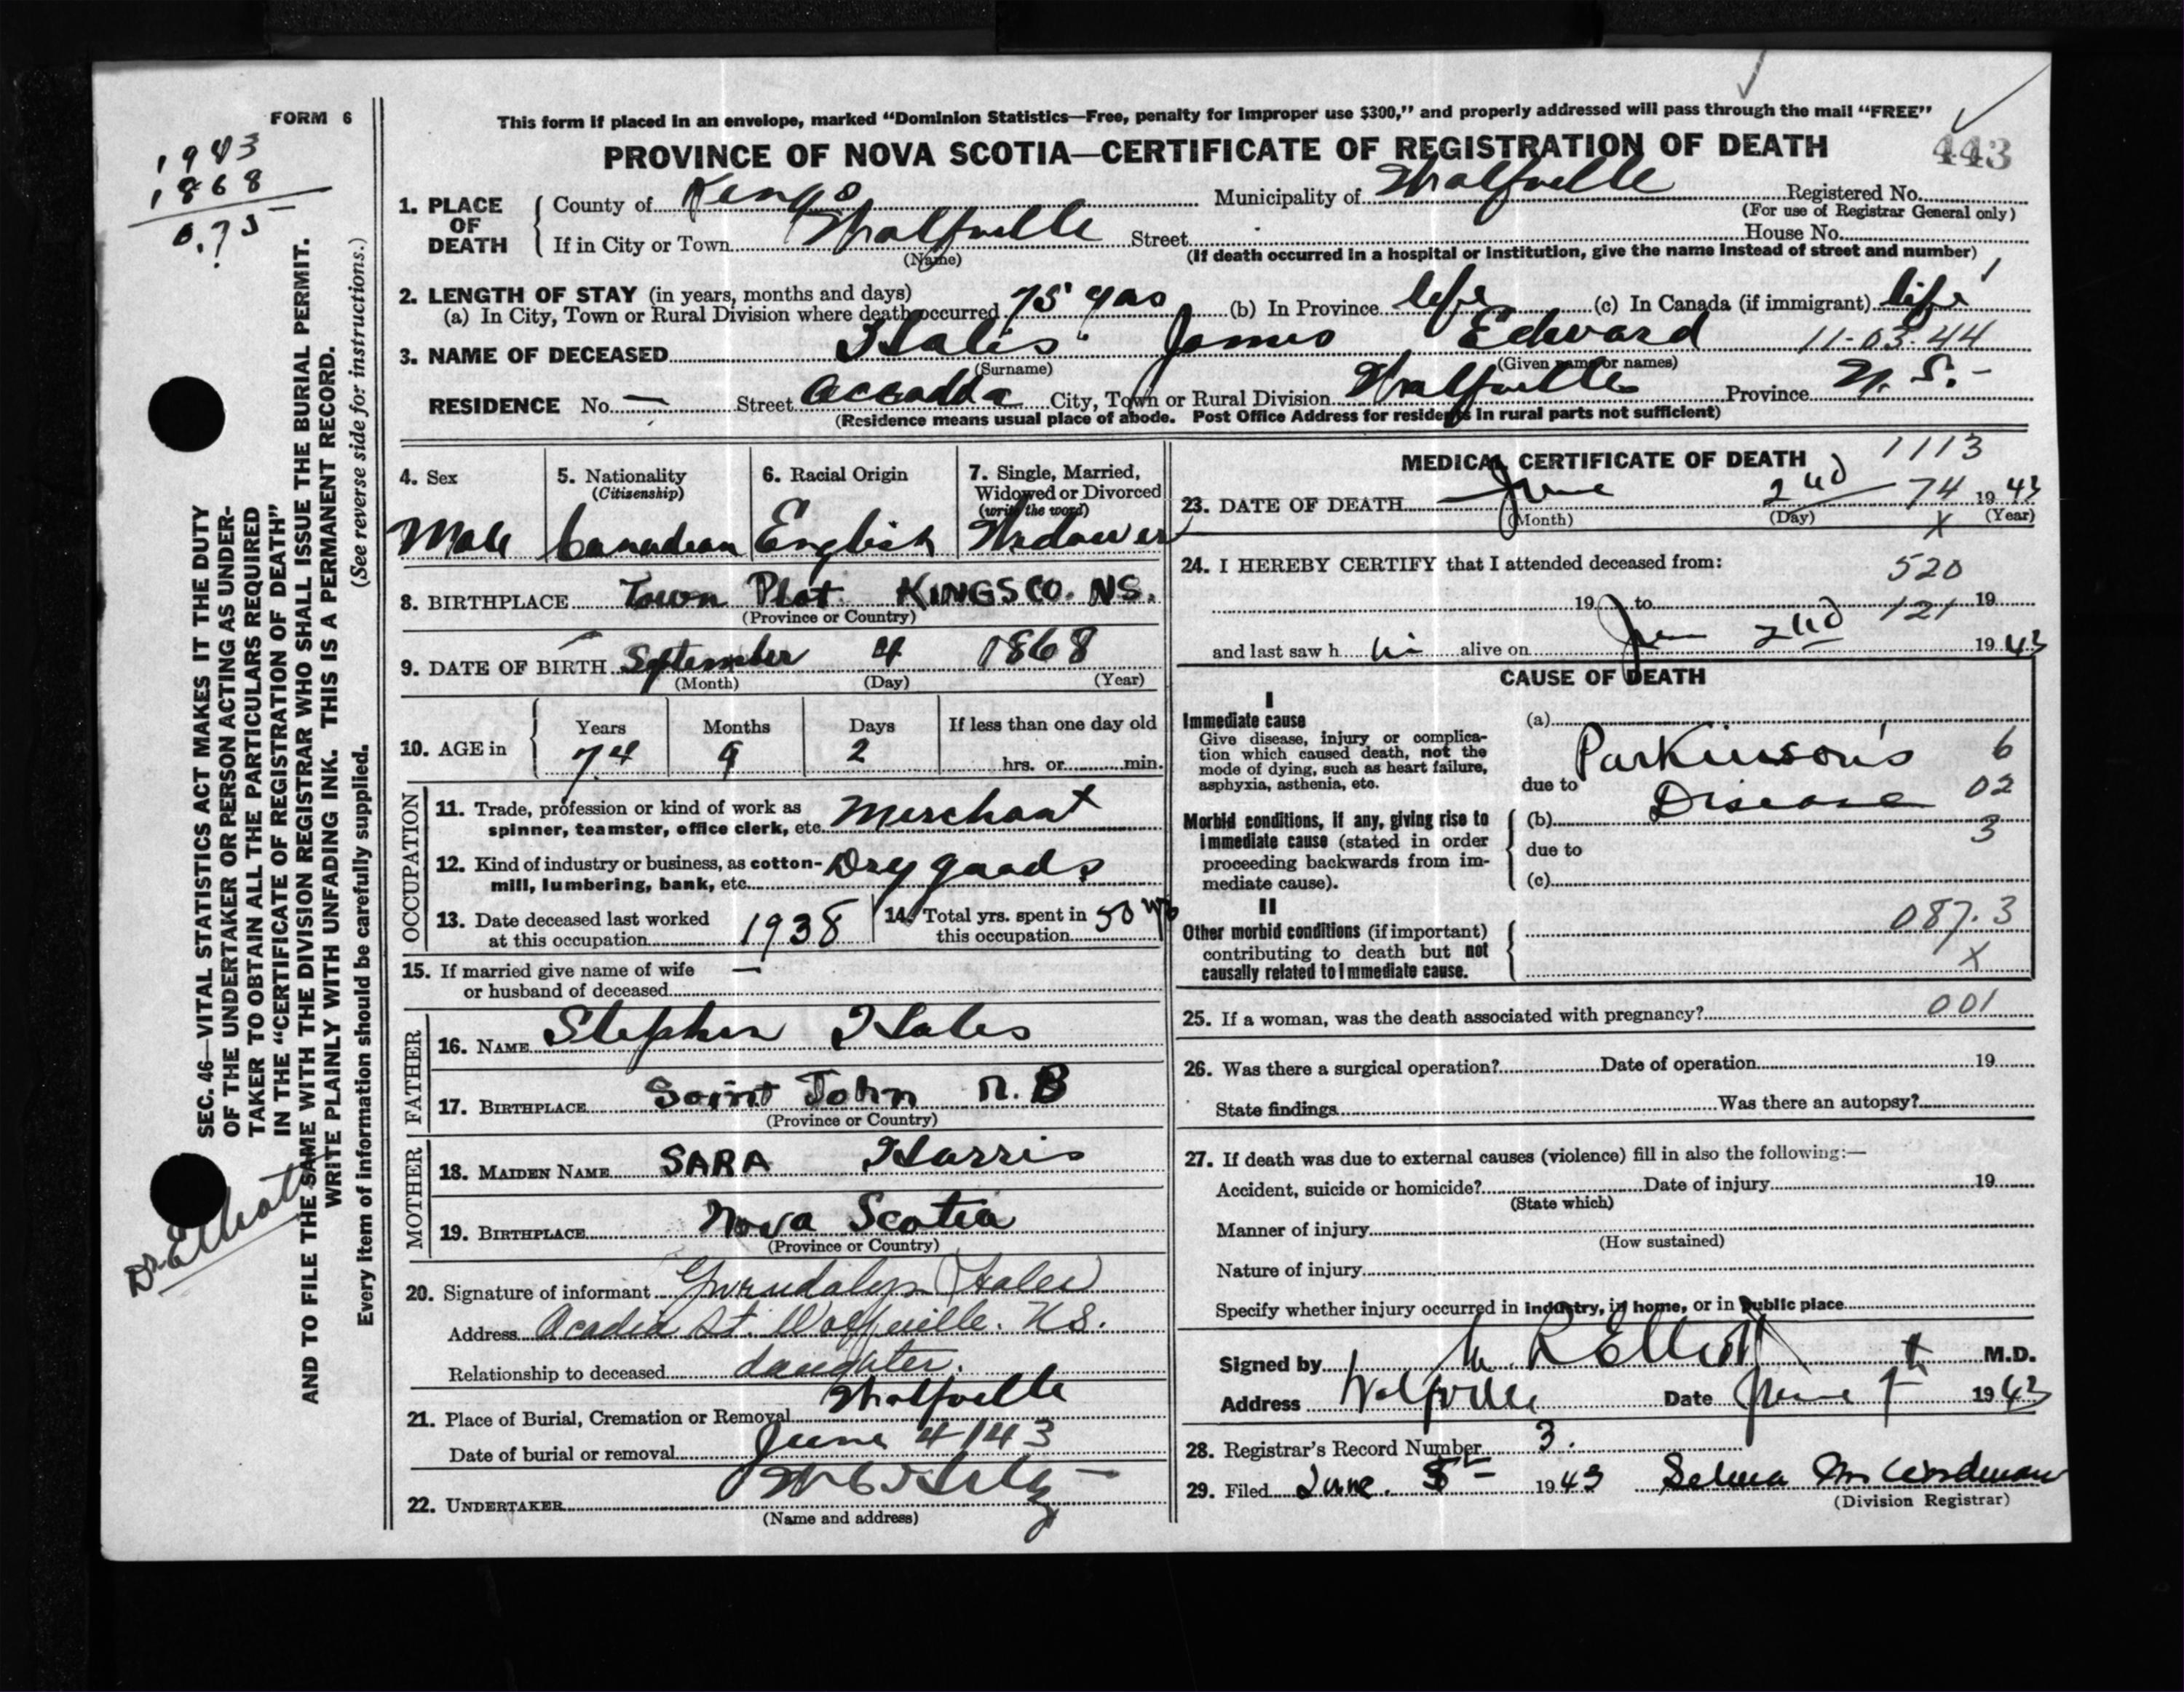 FORM 6
1943
1868
0.75
This form if placed in an envelope, marked “Dominion Statistics—Free, penalty for improper use $300,” and properly addressed will pass through the mail “FREE”
PROVINCE OF NOVA SCOTIA—CERTIFICATE OF REGISTRATION OF DEATH
443
1. PLACE OF DEATH
County of Kings Municipality of Wolfville Registered No.
(For use of Registrar General only)
If in City or Town Wolfville Street House No.
(Name) (If death occurred in a hospital or institution, give the name instead of street and number)
2. LENGTH OF STAY (in years, months and days)
(a) In City, Town or Rural Division where death occurred 75 yrs (b) In Province life (c) In Canada (if immigrant) life
3. NAME OF DECEASED Hales James Edward 11-03-44
(Surname) (Given name or names)
RESIDENCE No. — Street Accadda City, Town or Rural Division Wolfville Province N. S. -
(Residence means usual place of abode. Post Office Address for residents in rural parts not sufficient)
4. Sex 5. Nationality 6. Racial Origin 7. Single, Married,
(Citizenship) Widowed or Divorced
(write the word)
Male Canadian English Widower
8. BIRTHPLACE Town Plot KINGS CO. NS.
(Province or Country)
9. DATE OF BIRTH September 4 1868
(Month) (Day) (Year)
10. AGE in Years Months Days If less than one day old
74 9 2 hrs. or min.
OCCUPATION
11. Trade, profession or kind of work as
spinner, teamster, office clerk, etc. Merchant
12. Kind of industry or business, as cotton-
mill, lumbering, bank, etc. Dry goods
13. Date deceased last worked
at this occupation 1938
14. Total yrs. spent in
this occupation 50 yrs
15. If married give name of wife —
or husband of deceased
FATHER
16. NAME Stephen Hales
17. BIRTHPLACE Saint John N. B
(Province or Country)
MOTHER
18. MAIDEN NAME SARA Harris
19. BIRTHPLACE Nova Scotia
(Province or Country)
20. Signature of informant Gwendalyn Hales
Address Acadia St. Wolfville. N.S.
Relationship to deceased daughter.
21. Place of Burial, Cremation or Removal Wolfville
Date of burial or removal June 4/43
22. UNDERTAKER
(Name and address)
MEDICAL CERTIFICATE OF DEATH 1113
23. DATE OF DEATH June 2nd 74 1943
(Month) (Day) X (Year)
24. I HEREBY CERTIFY that I attended deceased from: 520
19 to 121 19
and last saw h im alive on June 2nd 1943
CAUSE OF DEATH
I
Immediate cause
Give disease, injury or complica-
tion which caused death, not the
mode of dying, such as heart failure,
asphyxia, asthenia, etc.
(a) Parkinson's 6
due to Disease 02
Morbid conditions, if any, giving rise to
immediate cause (stated in order
proceeding backwards from im-
mediate cause).
(b) 3
due to
(c)
II
Other morbid conditions (if important)
contributing to death but not
causally related to immediate cause.
087.3
X
25. If a woman, was the death associated with pregnancy? 001
26. Was there a surgical operation? Date of operation 19
State findings Was there an autopsy?
27. If death was due to external causes (violence) fill in also the following:—
Accident, suicide or homicide? Date of injury 19
(State which)
Manner of injury
(How sustained)
Nature of injury
Specify whether injury occurred in industry, in home, or in public place
Signed by R Elliott M.D.
Address Wolfville Date June 1943
28. Registrar's Record Number 3.
29. Filed June 5 1943 Selena M. Woodman
(Division Registrar)
SEC. 46—VITAL STATISTICS ACT MAKES IT THE DUTY
OF THE UNDERTAKER OR PERSON ACTING AS UNDER-
TAKER TO OBTAIN ALL THE PARTICULARS REQUIRED
IN THE “CERTIFICATE OF REGISTRATION OF DEATH”
AND TO FILE THE SAME WITH THE DIVISION REGISTRAR WHO SHALL ISSUE THE BURIAL PERMIT.
WRITE PLAINLY WITH UNFADING INK. THIS IS A PERMANENT RECORD.
Every item of information should be carefully supplied. (See reverse side for instructions.)
Dr Elliott